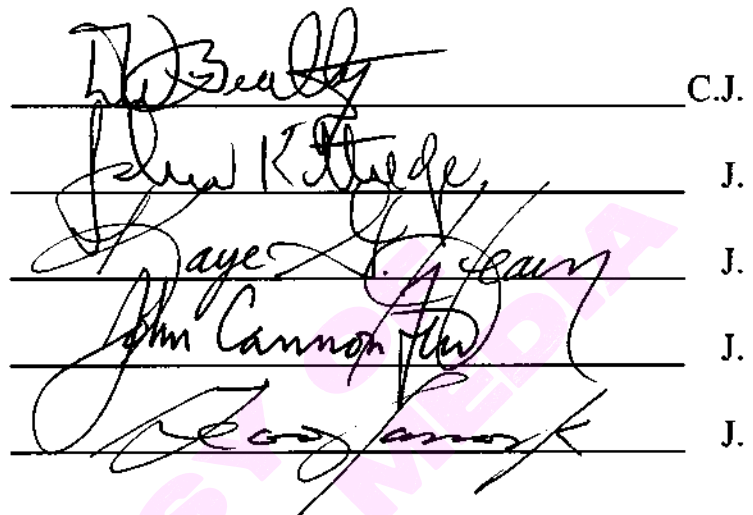 DW Beatty C.J.
John Kittredge J.
Kaye G. Hearn J.
John Cannon Few J.
J.
SY OF
MEDIA